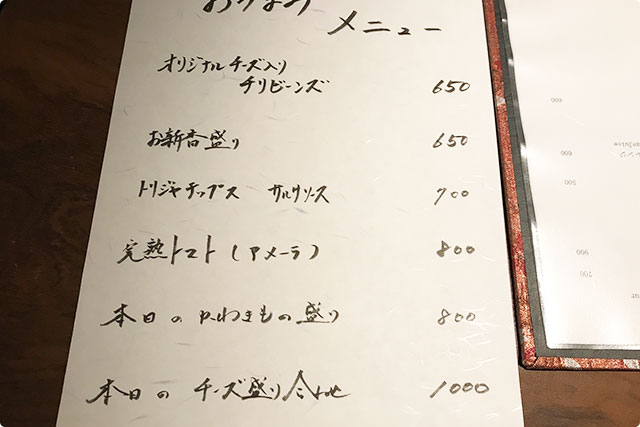 おつまみ
メニュー
オリジナルチーズ入り
チリビーンズ 650
お新香盛り 650
トリジャチップス サルサソース 700
完熟トマト(アメーラ) 800
本日のかわきもの盛り 800
本日のチーズ盛り合わせ 1000
600
600
500
900
700